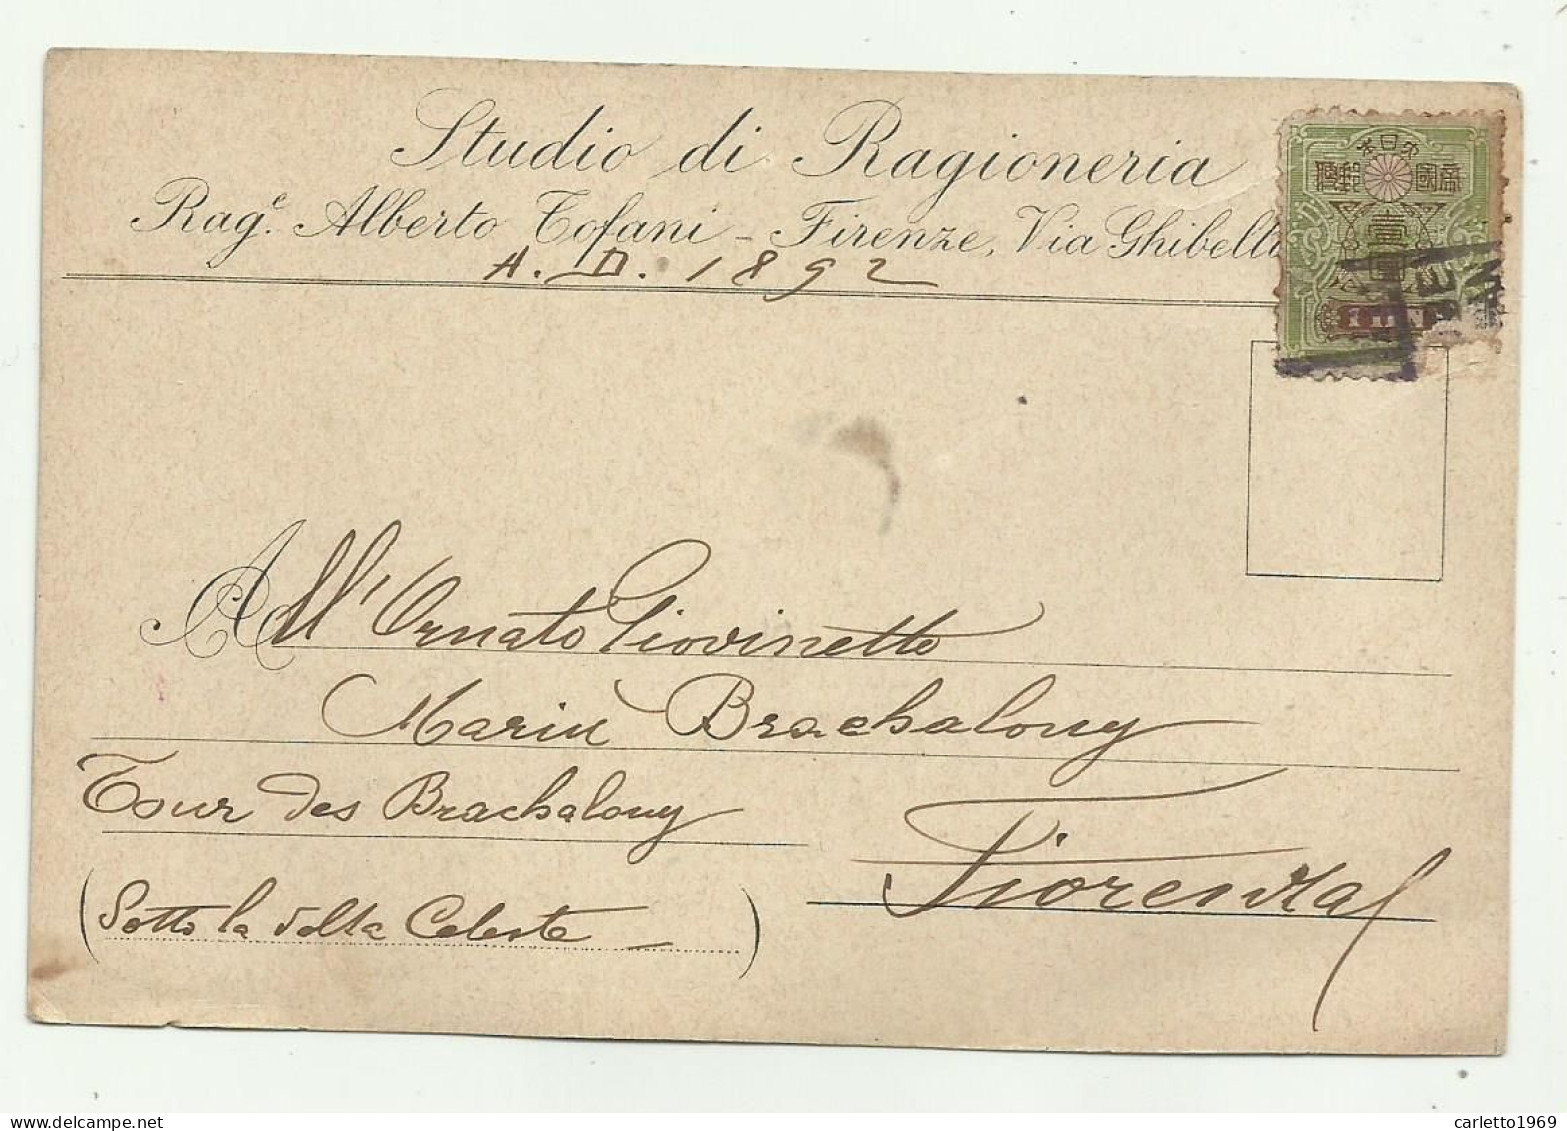 Studio di Ragioneria
Rag.e Alberto Tofani - Firenze, Via Ghibelli
A. D. 1892
大日本
帝國郵便
壹
1 YEN
All'Ornato Giovinetto
Marin Brachalouy
Tour des Brachalouy
Fiorenza
(Sotto la volta Celeste)
delcampe.net
carletto1969